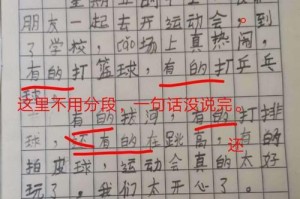 朋友一起去开运动会，到
了学校，cāo场上真热闹，
有的打篮球，有的打乒乓
球
这里不用分段，一句话没说完。
有的 有的打排
球，还有的在跳高，有的
还
拍皮球，运动会真的太好
玩了。我们太开心了。